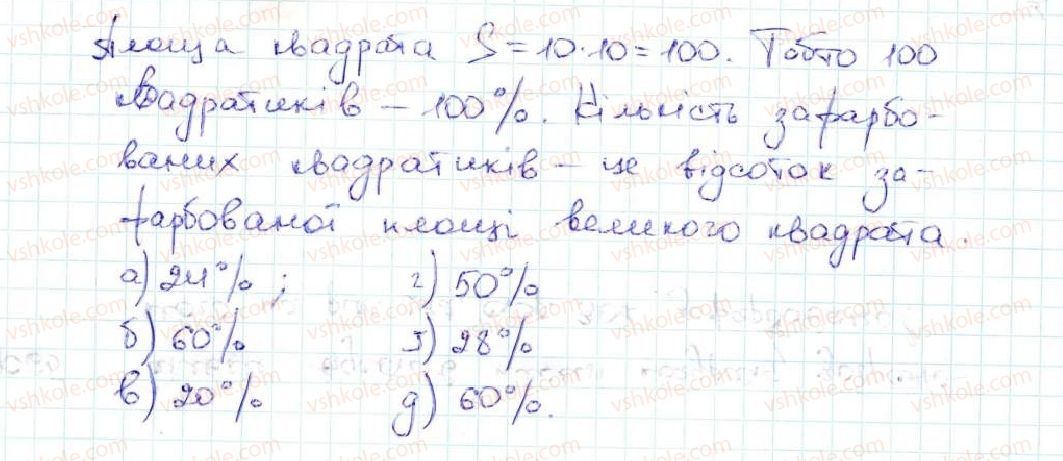 Площа квадрата S = 10·10 = 100. Тобто 100
квадратиків – 100%. Кількість зафарбо-
ваних квадратиків – це відсоток за-
фарбованої площі великого квадрата.
а) 24%; г) 50%
б) 60% ґ) 28%
в) 20% д) 60%.
vshkole.com